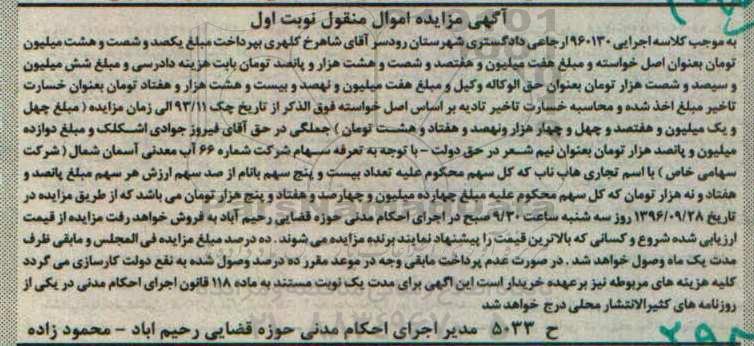 آگهی مزایده اموال منقول نوبت اول
به موجب کلاسه اجرایی ۹۶۰۱۳۰ ارجاعی دادگستری شهرستان رودسر آقای شاهرخ کلهری بپرداخت مبلغ یکصد و شصت و هشت میلیون
تومان بعنوان اصل خواسته و مبلغ هفت میلیون و هفتصد و شصت و هشت هزار و پانصد تومان بابت هزینه دادرسی و مبلغ شش میلیون
و سیصد و شصت هزار تومان بعنوان حق الوکاله وکیل و مبلغ هفت میلیون و نهصد و بیست و هشت هزار و هفتاد تومان بعنوان خسارت
تاخیر مبلغ اخذ شده و محاسبه خسارت تاخیر تادیه بر اساس اصل خواسته فوق الذکر از تاریخ چک ۹۳/۱۱ الی زمان مزایده ( مبلغ چهل
و یک میلیون و هفتصد و چهل و چهار هزار ونهصد و هفتاد و هشت تومان ) جملگی در حق آقای فیروز جوادی اشکلک و مبلغ دوازده
میلیون و پانصد هزار تومان بعنوان نیم عشر در حق دولت – با توجه به تعرفه سهام شرکت شماره ۶۶ آب معدنی آسمان شمال ( شرکت
سهامی خاص ) با اسم تجاری هاب ناب که کل سهم محکوم علیه تعداد بیست و پنج سهم باتام از صد سهم ارزش هر سهم مبلغ پانصد و
هفتاد و نه هزار تومان که کل سهم محکوم علیه مبلغ چهارده میلیون و چهارصد و هفتاد و پنج هزار تومان می باشد که از طریق مزایده در
تاریخ ۱۳۹۶/۰۹/۲۸ روز سه شنبه ساعت ۹/۳۰ صبح در اجرای احکام مدنی حوزه قضایی رحیم آباد به فروش خواهد رفت مزایده از قیمت
ارزیابی شده شروع و کسانی که بالاترین قیمت را پیشنهاد نمایند برنده مزایده می شوند . ده درصد مبلغ مزایده فی المجلس و مابقی ظرف
مدت یک ماه وصول خواهد شد . در صورت عدم پرداخت مابقی وجه در موعد مقرر ده درصد وصول شده به نفع دولت کارسازی می گردد
کلیه هزینه های مربوطه نیز برعهده خریدار است این اگهی برای مدت یک نوبت مستند به ماده ۱۱۸ قانون اجرای احکام مدنی در یکی از
روزنامه های کثیرالانتشار محلی درج خواهد شد
ح ۵۰۳۳ مدیر اجرای احکام مدنی حوزه قضایی رحیم اباد – محمود زاده